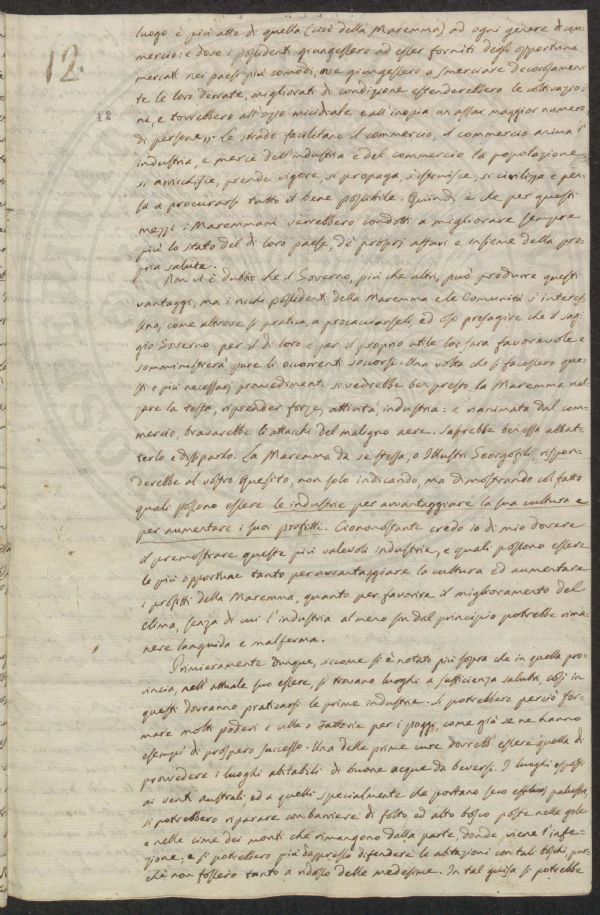 12.
12
luogo è più atto di quella (cioè della Maremma) ad ogni genere di com-
mercio: e dove i possidenti giungessero ad esser forniti degli opportuni
mercati nei paesi più comodi, ove giungessero a smerciare decorosamen-
te le loro derrate, migliorati di condizione estenderebbero le coltivazio-
ni, e torrebbero all'ozio micidiale e all'inopia un assai maggior numero
di persone,,. Le strade facilitano il commercio, il commercio anima l'
industria, e mercè dell'industria e del commercio la popolazione
si arricchisce, prende vigore, si propaga, s'istruisce, si civilizza e pen-
sa a procurarsi tutto il bene possibile. Quindi è che per questi
mezzi i Maremmani verrebbero condotti a migliorare sempre
più lo stato del di loro paese, de' proprj affari e insieme della pro-
pria salute.
Non vi è dubbio che il Governo, più che altri, può produrre questi
vantaggi, ma i ricchi possidenti della Maremma e le Comunità s'interes-
sino, come altrove si pratica, a procacciarseli, ed oso presagire che il sag-
gio Governo per il di loro e per il proprio utile lor sarà favorevole e
somministrerà pure li occorrenti soccorsi. Una volta che si facessero que-
sti e più necessarj provvedimenti si vedrebbe ben presto la Maremma rial-
zare la testa, riprender forze, attività, industria: e rianimata dal com-
mercio, braverebbe li attacchi del maligno aere. Saprebbe ben essa abbat-
terlo e dissiparlo. La Maremma da se stessa, o Illustri Georgofili, rispon-
derebbe al vostro Quesito, non solo indicando, ma dimostrando col fatto
quali possono essere le industrie per avvantaggiare la sua cultura e
per aumentare i suoi profitti. Ciononostante credo io di mio dovere
il premostrare queste più valevoli industrie, e quali possono essere
le più opportune tanto per avvantaggiare la cultura ed aumentare
i profitti della Maremma, quanto per favorire il miglioramento del
clima, senza di cui l'industria almeno sin dal principio potrebbe rima-
nere languida e malferma.
Primieramente dunque, siccome si è notato più sopra che in quella pro-
vincia, nell'attuale suo essere, si trovano luoghi a sufficienza salubri, così in
questi dovranno praticarsi le prime industrie. Si potrebbero perciò for-
mare molti poderi e ville o Fattorie per i poggi, come già se ne hanno
esempi di prospero successo. Una delle prime cure dovrebb' essere quella di
provvedere i luoghi abitabili di buone acque da beversi. I luoghi esposti
ai venti australi, ed a quelli specialmente che portano seco effluvj palustri,
si potrebbero riparare con barriere di folto ed alto bosco poste nelle gole
e nelle cime dei monti che rimangono dalla parte, donde viene l'infe-
zione; e si potrebbero più dappresso difendere le abitazioni con tali boschi, pur-
chè non fossero tanto a ridosso delle medesime. In tal guisa si potrebbe